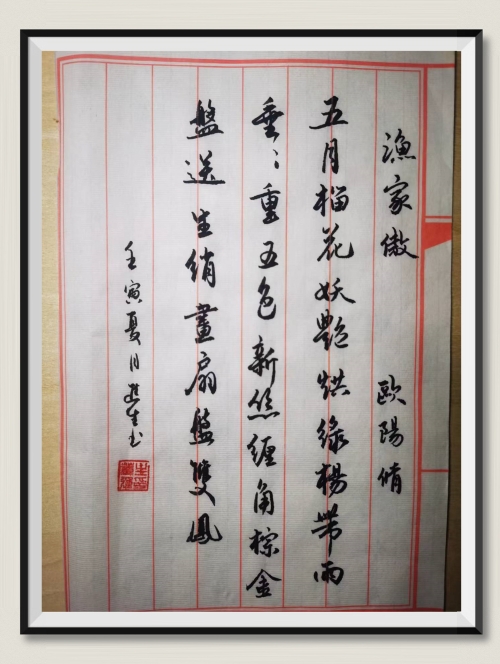 漁家傲 歐陽脩
五月榴花妖艷烘綠楊帶雨
垂〻重五色新絲纏角棕金
盤送生綃畫扇盤雙鳳
壬寅夏月進生書